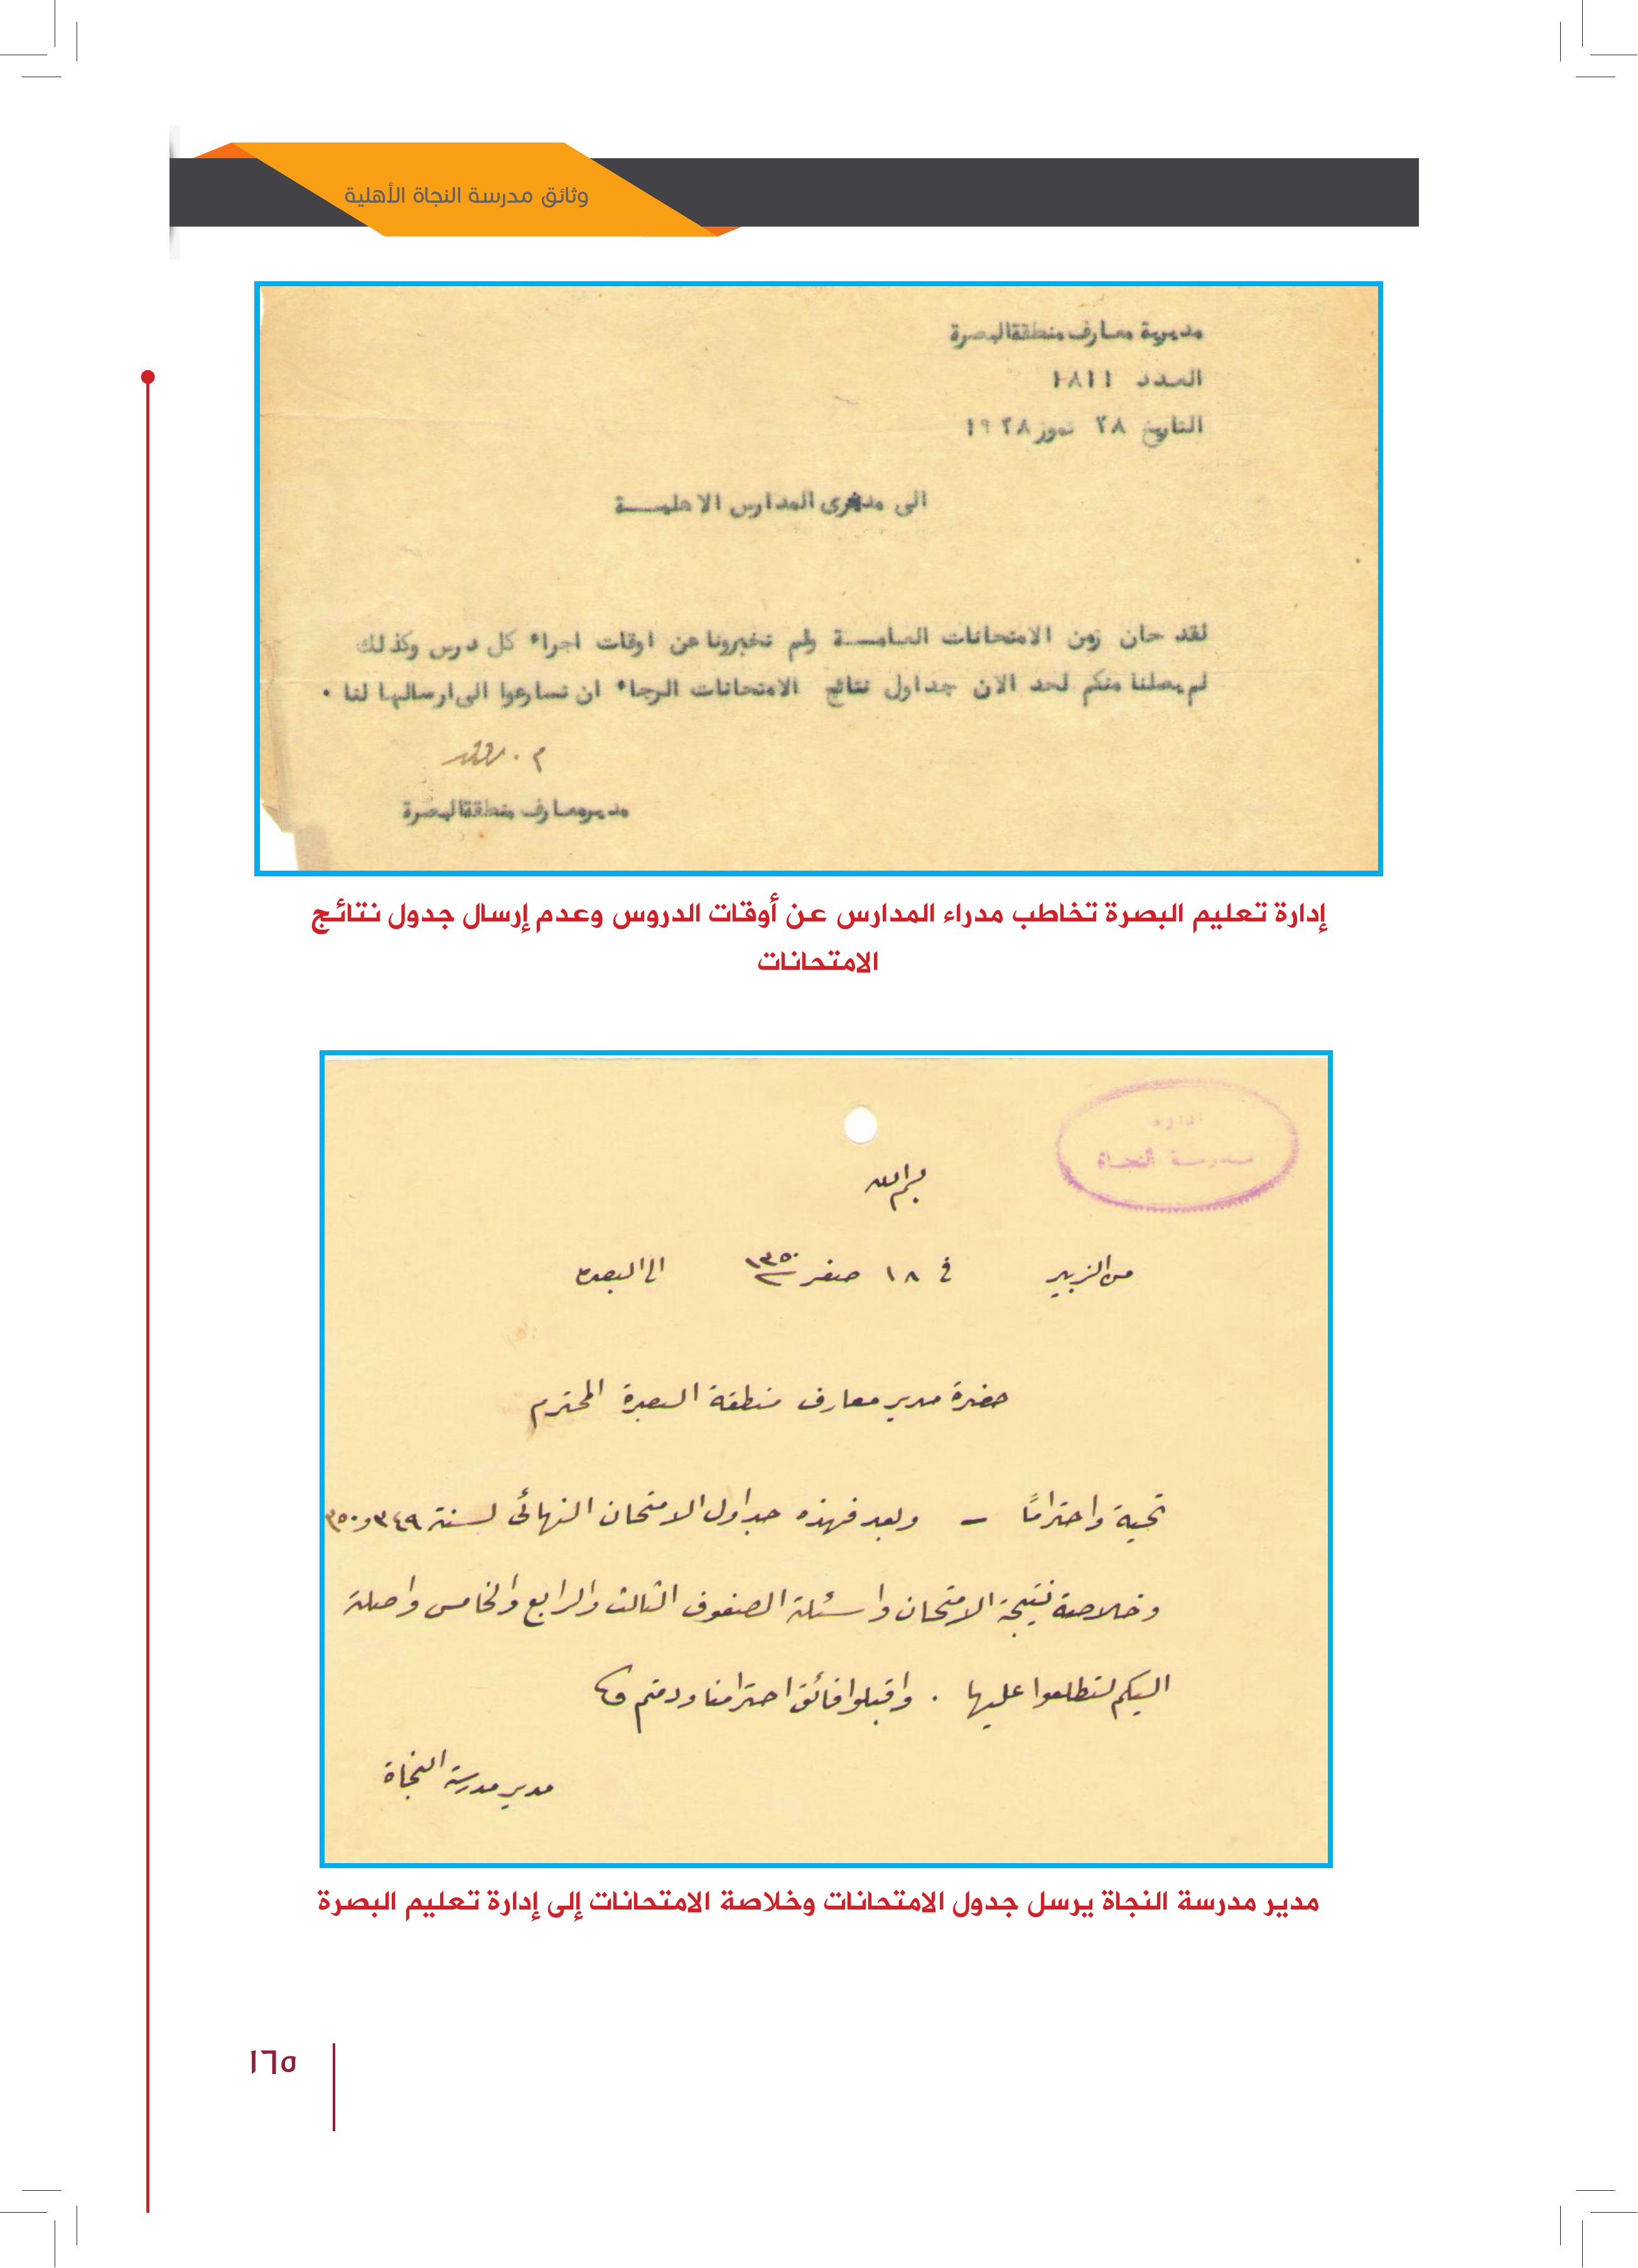 وثائق مدرسة النجاة الأهلية
مديرية معارف منطقة البصرة
العدد ١٨١١
التاريخ ٢٨ تموز ١٩٢٨
الى مديرى المدارس الاهليـــة
لقد حان زمن الامتحانات العامـــة ولم تخبرونا عن اوقات اجراء كل درس وكذلك
لم يصلنا منكم لحد الان جداول نتائج الامتحانات الرجاء ان تسارعوا الى ارسالها لنا .
مدير معارف منطقة البصرة
إدارة تعليم البصرة تخاطب مدراء المدارس عن أوقات الدروس وعدم إرسال جدول نتائج
الامتحانات
ادارة
مدرسة النجاة
بسم الله
من الزبير في ١٨ صفر ١٣٥٠ الى البصرة
حضرة مدير معارف منطقة البصرة المحترم
تحية واحترامًا – وبعد فهذه جداول الامتحان النهائي لسنة ٣٤٩ و ٣٥٠
وخلاصة نتيجة الامتحان واسئلة الصفوف الثالث والرابع والخامس واصلة
اليكم لتطلعوا عليها . واقبلوا فائق احترامنا ودمتم
مدير مدرسة النجاة
مدير مدرسة النجاة يرسل جدول الامتحانات وخلاصة الامتحانات إلى إدارة تعليم البصرة
١٦٥